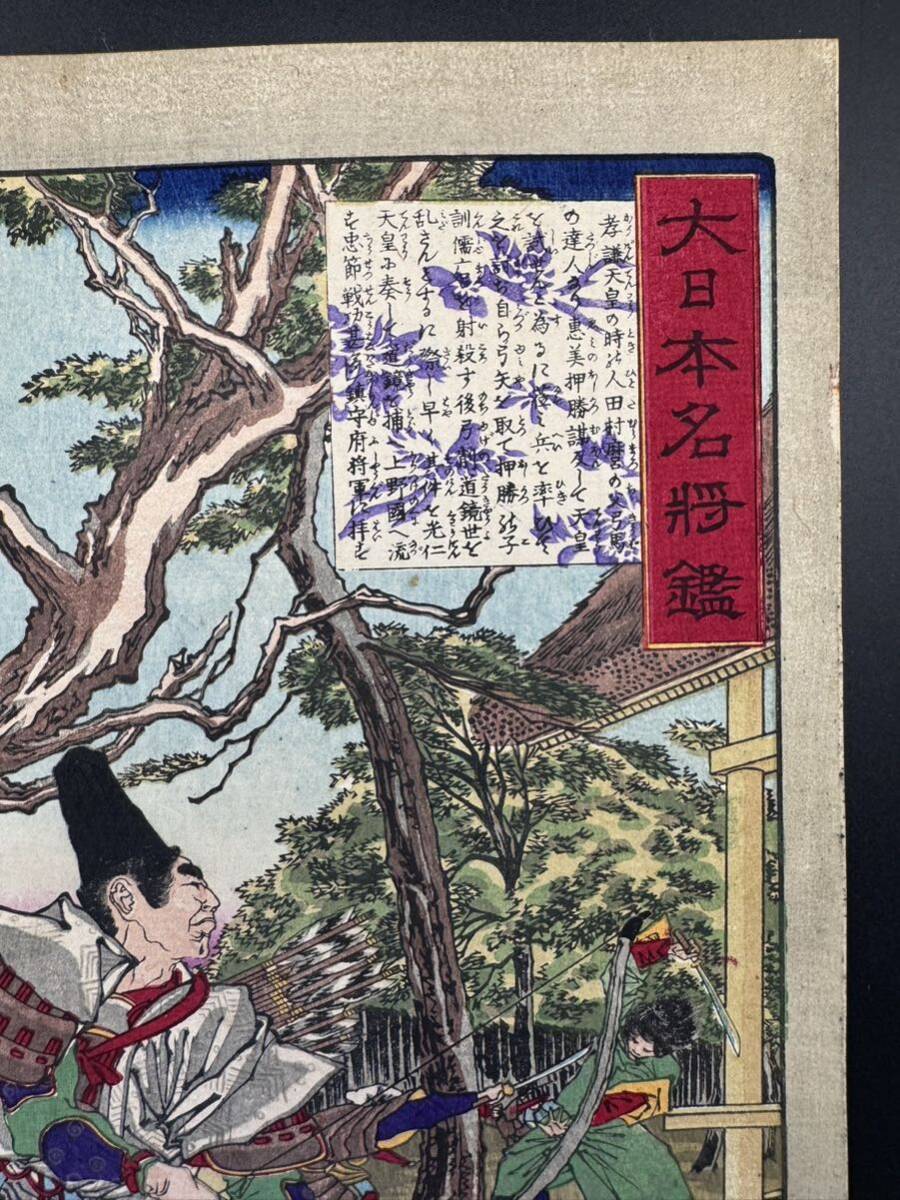 大日本名将鑑
孝謙天皇の時の人田村麿の父弓馬
の達人なり恵美押勝謀反して天皇
を討んと為るに従ふ兵を率ひて
之を討ち自ら弓矢を取て押勝の子
訓儒麻呂を射殺す後弓削道鏡世を
乱さんとするに際し早く其件を光仁
天皇に奏して道鏡を捕へ上野國へ流
す忠節戦功甚だし鎮守府将軍に拝す